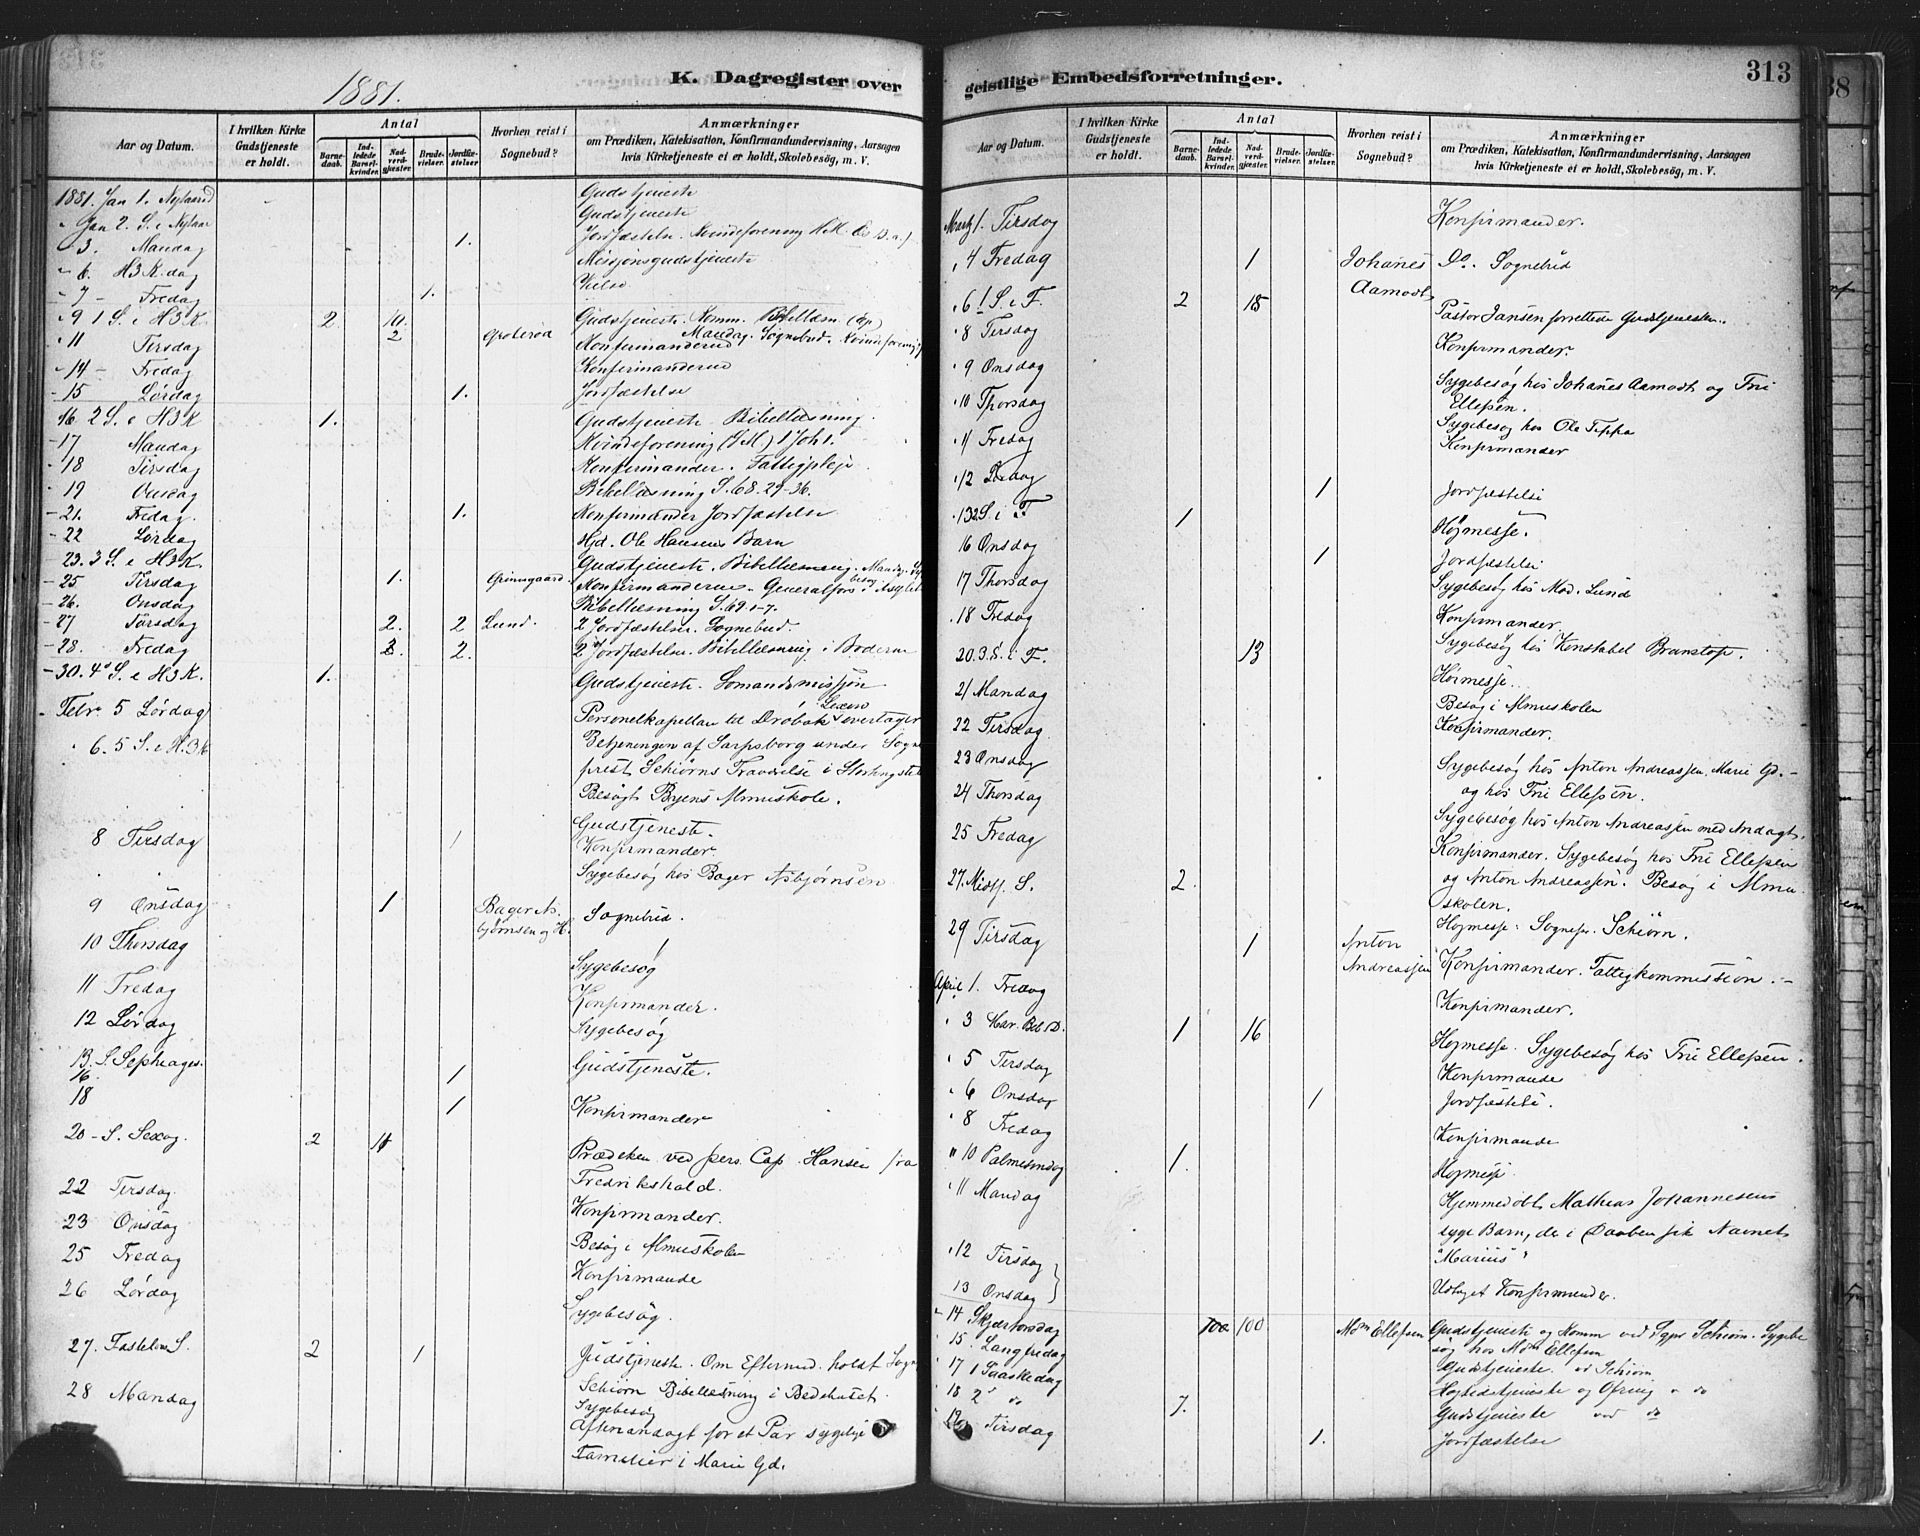 1881.
K. Dagregister over
Aar og Datum.
I hvilken Kirke Gudstjeneste er holdt.
Antal
Barnedaab.
Indledede Barselkvinder.
Nadverdgjæster.
Brudevielser.
Jordfæstelser.
Hvorhen reist i Sognebud?
Anmærkninger
om Prædiken, Katekisation, Konfirmandundervisning, Aarsagen
hvis Kirketjeneste ei er holdt, Skolebesög, m. V.
1881. Jan 1. Nytaarsd Gudstjeneste
Jan 2. S. e Nytaar Gudstjeneste
3. Mandag 1. Jordfæstelse. Kvindeforening
6. H3K.dag Missjonsgudstjeneste
7 Fredag 1. Vielse
9 1 S. e H3K. 2. 10. Gudstjeneste. Komm. Bibellæsn.
11 Tirsdag 2 Konfirmanderne Mandag. Sognebud.
14 Fredag Konfirmanderne
15 Lørdag 1. Jordfæstelse
16. 2 S. e H3K 1. Gudstjeneste Bibellæsning.
17 Mandag Kvindeforening (I.M.) 1 Joh 1.
18 Tirsdag Konfirmander. Fattigpleje
19 Onsdag Bibellæsning S. 68. 29-36.
21. Fredag. 1. Konfirmander Jordfæstelse
22 Lørdag Hjd. Ole Hansens Barn
23. 3 S. e H3K. Gudstjeneste. Bibellæsning. Mandag
25 Tirsdag 1. Grinngaard. Konfirmanderne. Generalfors. i Asylet
26. Onsdag Bibellæsning S. 69. 1-7.
27 Torsdag 2. 2 Lund. 2 Jordfæstelser. Sognebud.
28. Fredag 2. 2. 2 Jordfæstelse. Bibellæsning i Boderne
30. 4 S. e H3K. 1. Gudstjeneste. Sømandsmissjon
Febr. 5 Lørdag Personelkapellan til Drøbak overtager
6. 5 S. e H.3K Betjeningen af Sarpsborg under Sogne
prest Schiørns Fraværelse i Stortingstid
Besøgt Byens Almuskole.
Gudstjeneste.
8 Tirsdag 1 Konfirmander.
Sygebesøg hos Bager Asbjørnsen
9 Onsdag 1 Bager Asbjørnsen og H. Sognebud.
10 Thorsdag Sygebesøg
11 Fredag Konfirmander.
12 Lørdag Sygebesøg
13. S. Septuages. Gudstjeneste.
16. 1
18 1 Konfirmander
20 - S. Sexag. 2 11 Prædiken ved pers. Cap. Hansen fra
Fredrikshald.
22 Tirsdag. Konfirmander.
23 Onsdag Besøg i Almuskolen
25 Fredag Konfirmande
26 Lørdag Sygebesøg.
27. Fastelavn S. 2 1 Gudstjeneste. Om Eftermed. holdt Sogne
Schiørn Bibellæsning i Bedehuset.
28 Mandag Sygebesøg
Aftenandagt for et Par sygelige
Familier i Marie Gd.
geistlige Embedsforretninger.
313
Aar og Datum.
I hvilken Kirke Gudstjeneste er holdt.
Antal
Barnedaab.
Indledede Barselkvinder.
Nadverdgjæster.
Brudevielser.
Jordfæstelser.
Hvorhen reist i Sognebud?
Anmærkninger
om Prædiken, Katekisation, Konfirmandundervisning, Aarsagen
hvis Kirketjeneste ei er holdt, Skolebesög, m. V.
Marts 1. Tirsdag Konfirmander.
4 Fredag 1 Johanes Aamodt Do. Sognebud
6 1 S. i F. 2 18 Pastor Jansen forrettede Gudstjenesten.
8 Tirsdag Konfirmander.
9 Onsdag Sygebesøg hos Johanes Aamodt og Fru
10 Thorsdag Ellefsen.
Sygebesøg hos Ole Teppa
11 Fredag Konfirmander
12 Lørdag 1 Jordfæstelse
13 2 S. i F 1 Højmesse.
16 Onsdag 1 Jordfæstelse
17 Thorsdag Sygebesøg hos Mad. Lund
18 Fredag Konfirmander.
20. 3. S. i F. 13 Sygebesøg hos Konstabel Branstop.
Højmesse.
21 Mandag Besøg i Almuskolen
22 Tirsdag Konfirmander.
23 Onsdag Sygebesøg hos Anton Andreassen, Marie Gd. -
24 Thorsdag og hos Fru Ellefsen.
Sygebesøg hos Anton Andreassen med Andagt.
25 Fredag Konfirmander. Sygebesøg hos Fru Ellefsen
27. Midtf. S. 2. og Anton Andreassen. Besøg i Almu
skolen.
Højmesse. Sognepr. Schiørn.
29 Tirsdag 1 Anton Andreassen Konfirmander. Fattigkommission. -
April 1. Fredag Konfirmander.
3 Mar. Beb. D. 1 16 Højmesse. Sygebesøg hos Fru Ellefsen.
5 Tirsdag Konfirmande
6 Onsdag 1 Jordfæstelse.
8 Fredag Konfirmande
10 Palmesøndag 1. Højmesse.
11 Mandag Hjemmedøbt Mathias Johannesens
syge Barn, der i Daaben fik Navnet
"Marius"
12 Tirsdag
13 Onsdag Udtaget Konfirmander.
14 Skjærtorsdag 100 100 Mdm Ellefsen Gudstjeneste og Komm ved Sgpr Schiørn. Sygebe
søg hos Mdm Ellefsen
15. Langfredag Gudstjeneste v Schiørn
17 1 Paaskedag Høitidstjeneste og Ofring v do
18 2 do 7. Gudstjeneste ved do
19 Tirsdag 1. Jordfæstelse